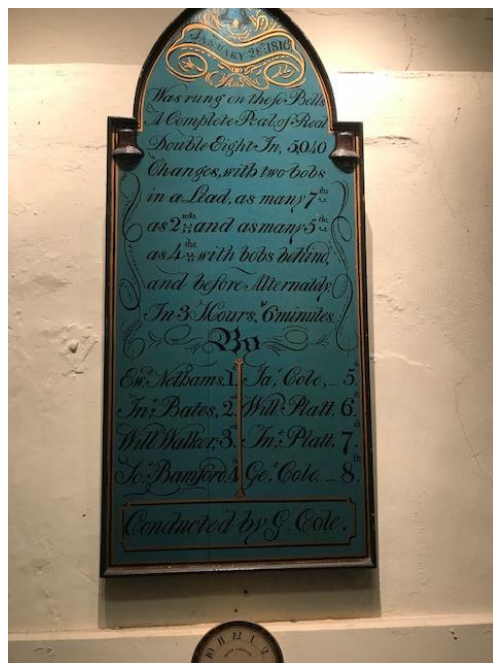 JANUARY 28: 1816
Was rung on these Bells
A Complete Peal, of Real
Double Eight In, 5,040
Changes, with two bobs
in a Lead, as many 7ths.
as 2nds. and as many 5ths.
as 4ths. with bobs behind,
and before Alternately.
In 3 Hours, & 6 minutes.
By
Ewd. Nelhams. 1. Ja.s Cole, 5.
Jn.o Bates, 2. Will. Platt. 6.
Will. Walker. 3. Jn.o Platt. 7.
Jo.s Bamford. 4. Ge.o Cole. 8.
Conducted by G. Cole.
10 11 12 1 2